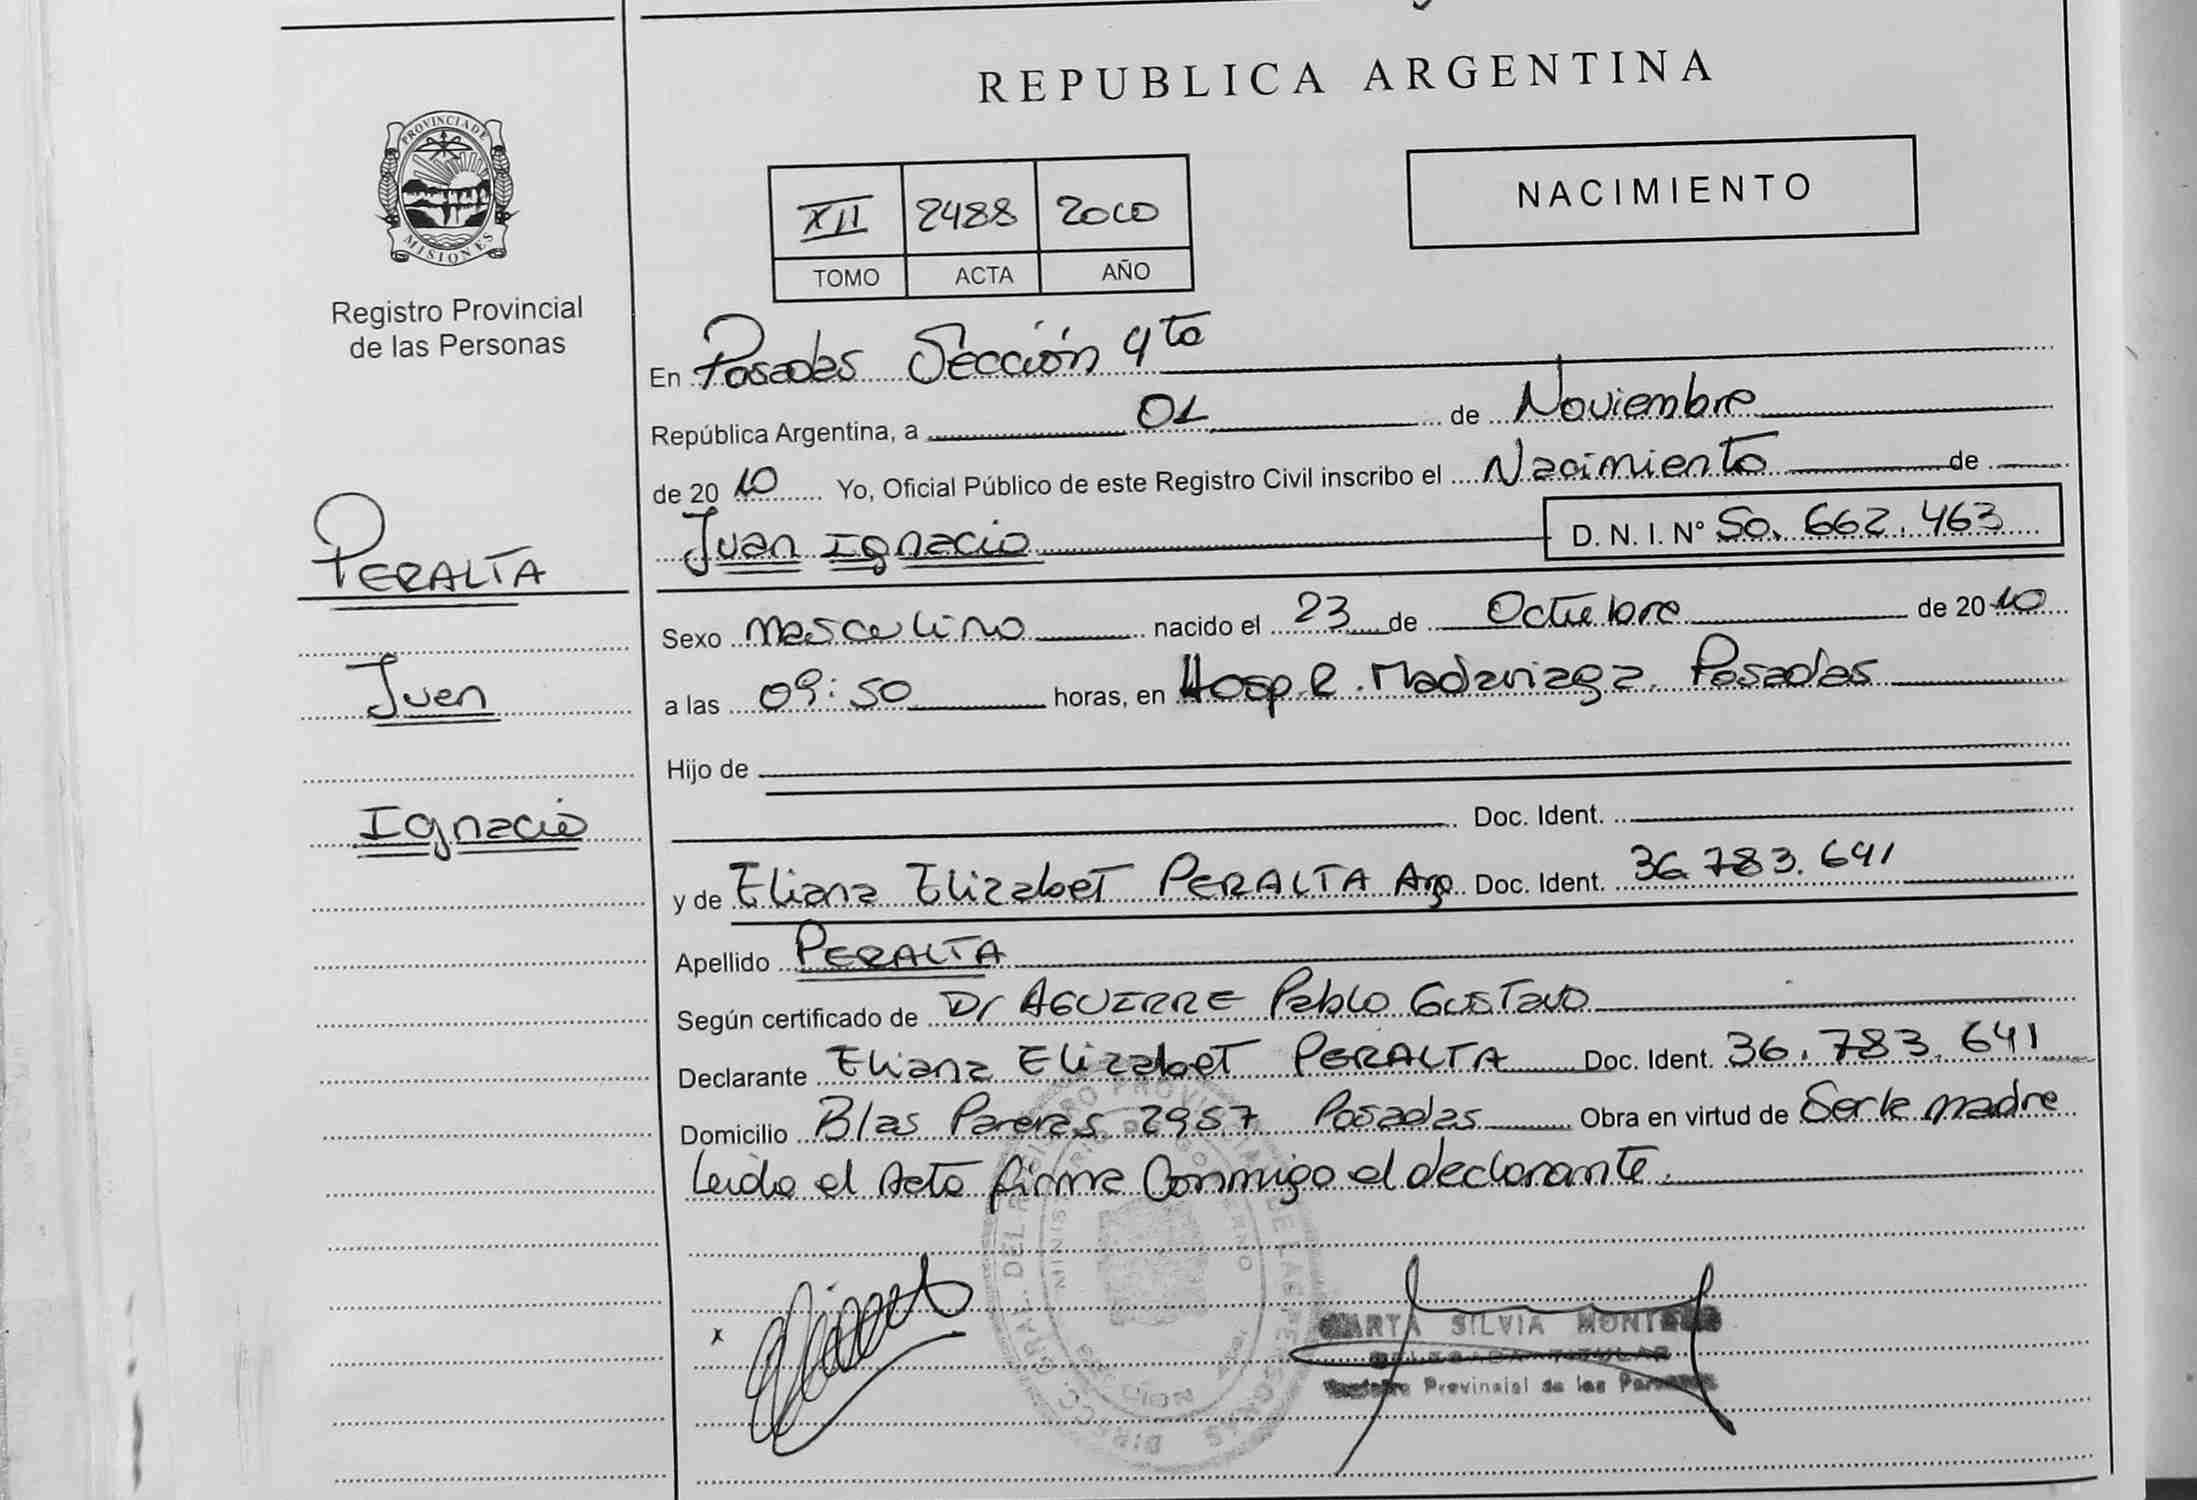 REPUBLICA ARGENTINA
PROVINCIA DE
MISIONES
Registro Provincial
de las Personas
NACIMIENTO
XII 2488 2010
TOMO ACTA AÑO
En Posadas Sección 4ta
República Argentina, a 01 de Noviembre
de 2010 Yo, Oficial Público de este Registro Civil inscribo el Nacimiento de
Juan Ignacio D. N. I. Nº 50.662.463
PERALTA
Juan
Ignacio
Sexo Masculino nacido el 23 de Octubre de 2010
a las 09:50 horas, en Hosp. R. Madariaga. Posadas
Hijo de
Doc. Ident.
y de Eliana Elizabet PERALTA Arg. Doc. Ident. 36.783.641
Apellido PERALTA
Según certificado de Dr AGUIRRE Pablo Gustavo
Declarante Eliana Elizabet PERALTA Doc. Ident. 36.783.641
Domicilio Blas Pareras 2957 Posadas Obra en virtud de Ser la madre
Leida el Acta firma Conmigo el declarante.
SILVIA
Registro Provincial de las Personas